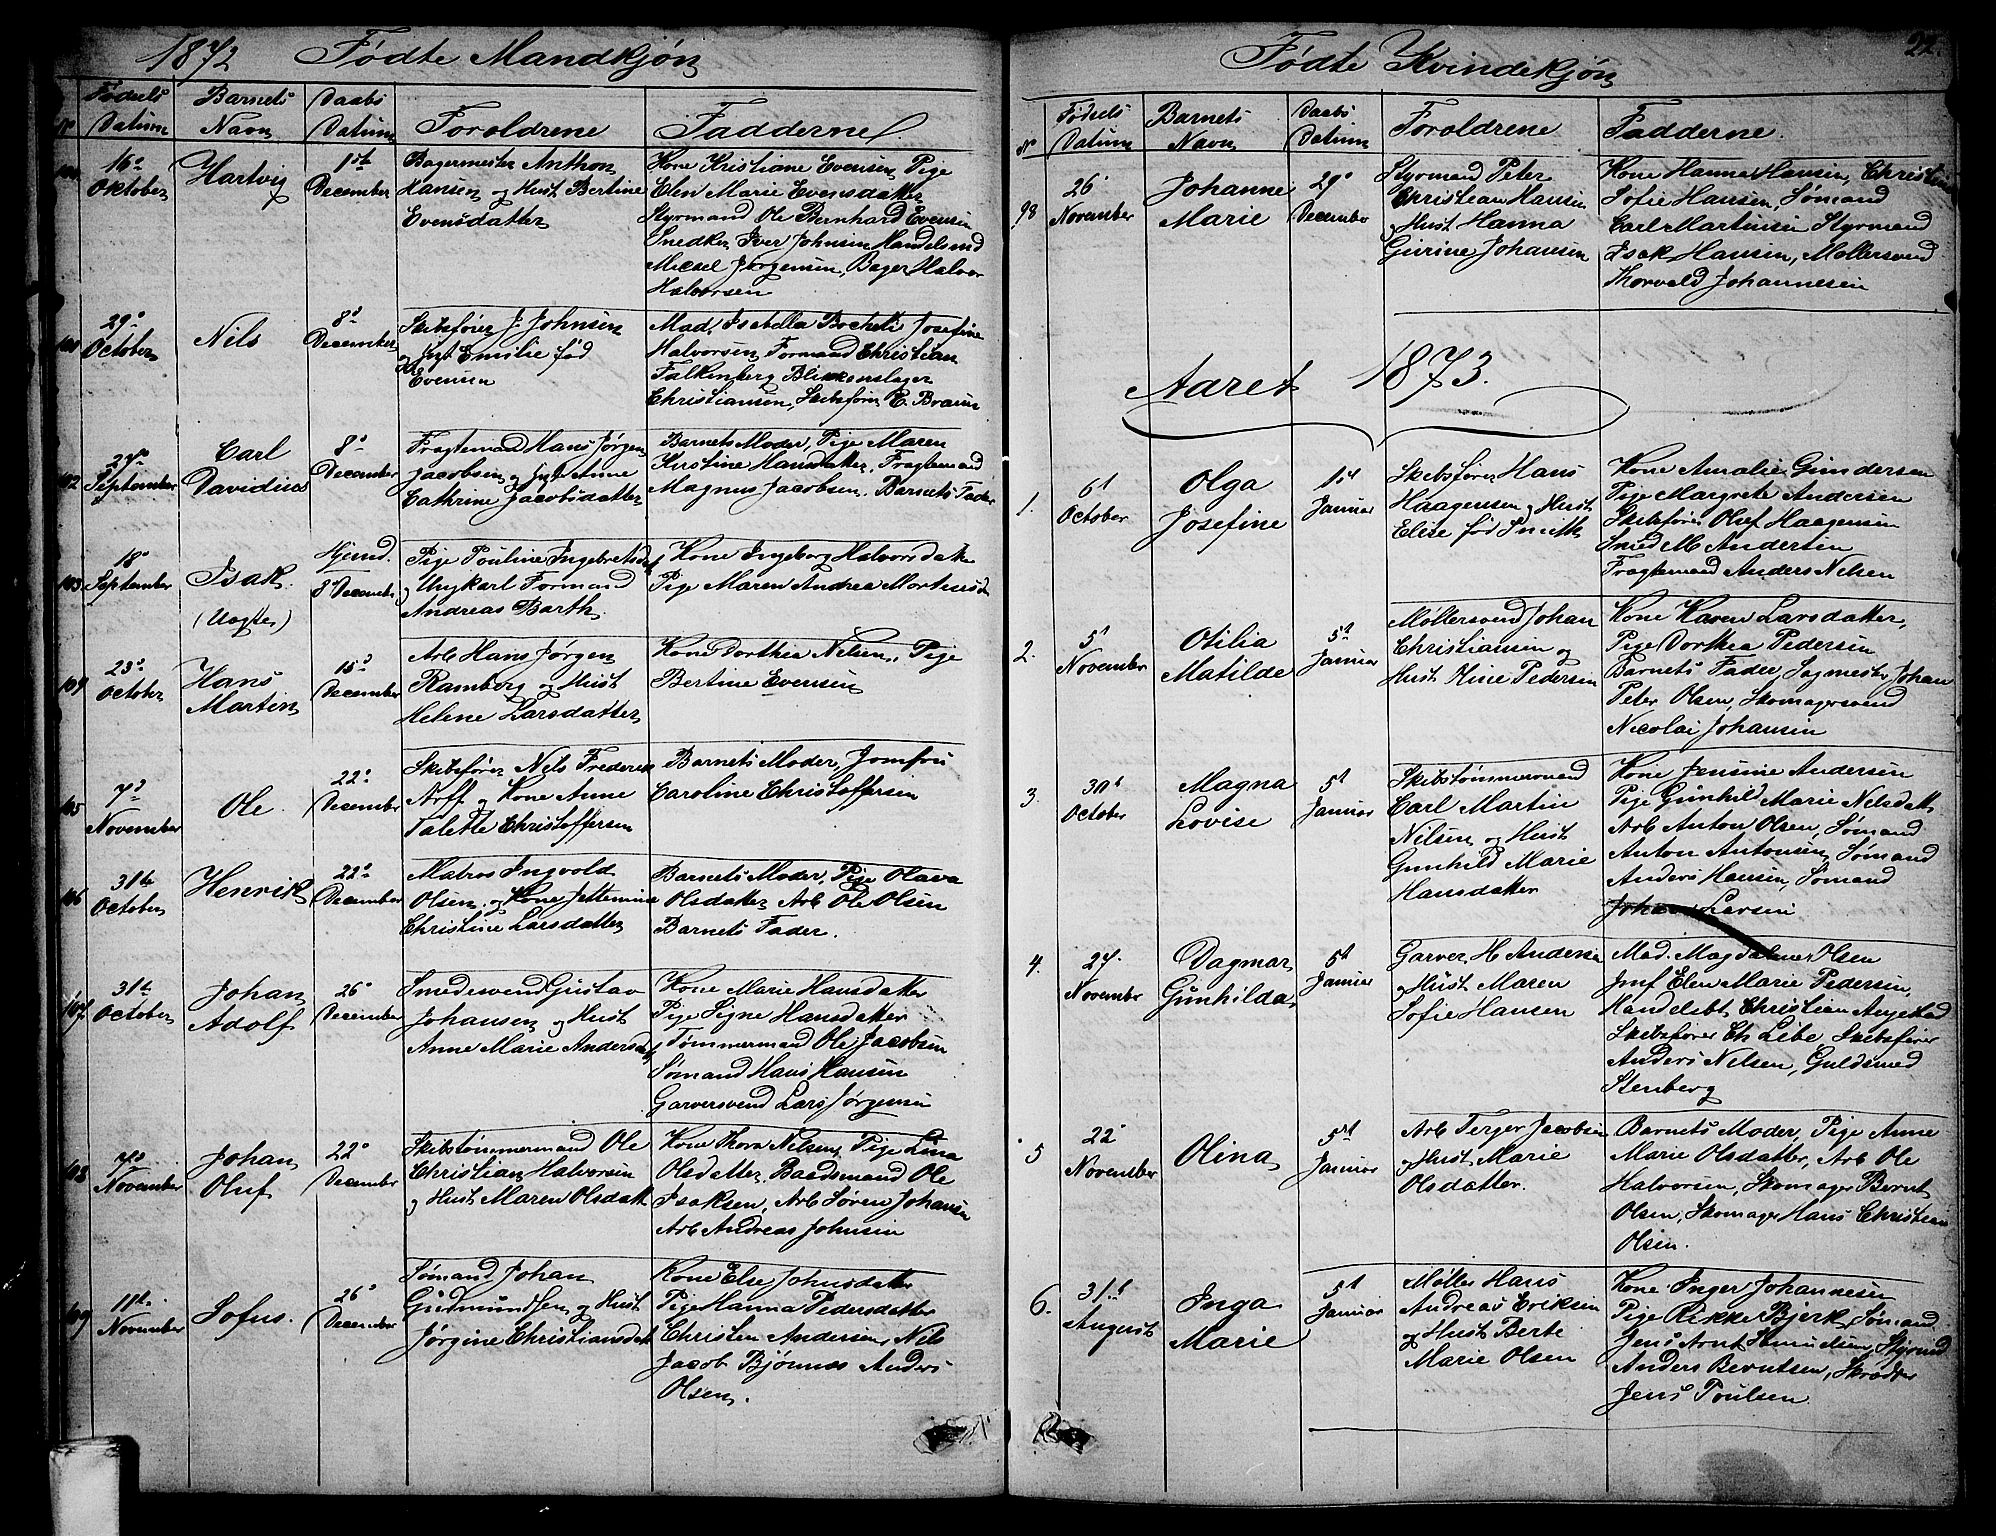 1872 Fødte Mandkjøn
No
Fødsels
Datum
Barnets
Navn
Daabs
Datum
Foroldrene
Fadderne
100
16de
Oktober
Hartvig
1ste
December
Bagermester Anthon
Hansen og Hust Bertine
Evensdatter
Kone Kristiane Evensen, Pige
Elen Marie Evensdatter
Styrmand Ole Bernhard Evensen
Snedker Iver Johnsen Handelsmd
Micael Jørgensen, Bager Halvor
Halvorsen
101
29de
October
Nils
8de
December
Skibsfører J. Johnsen
og Emilie fød
Evensen
Mad. Isabella Josefine
Halvorsen, Formand Christian
Falkenberg Blikkenslager
Christiansen, Skibsfører E. Braun
102
September
Carl
Davidius
8de
December
Fragtemand Hans Jørgen
Jacobsen og Anne
Cathrine Jacobsdatter
Barnets Moder, Pige Maren
Kirstine Hansdatter, Fragtemand
Magnus Jacobsen, Barnets Fader
103
18de
September
Isak.
(Uægte)
Hjemd.
8 December
Pige Pouline Ingebretsd
og Ungkarl Formand
Andreas Barth.
Kone Ingeborg Halvorsdatter
Pige Maren Andrea Mortensd
104
23de
October
Hans
Martin
15de
December
Arb Hans Jørgen
Ramberg og Hust
Helene Larsdatter
Kone Dorthea Nelsen, Pige
Bertine Evensen
105
7de
November
Ole.
22de
December
Skibsfører Nels Frederik
Arff og Kone Anne
Talette Christoffersen
Barnets Moder, Jomfru
Caroline Christoffersen
106
31te
October
Henrik
22de
December
Matros Ingvold
Olsen og Kone Jettemine
Christine Larsdatter
Barnets Moder, Pige Olava
Olsdatter Arb Ole Olsen
Barnets Fader.
107
31te
October
Johan
Adolf
26de
December
Smedesvend Gustav
Johansen og Hust
Anne Marie Andersd
Kone Marie Hansdatter
Pige Signe Hansdatter
Tømmermand Ole Jacobsen
Sømand Hans Hansen
Garversvend Lars Jørgensen
108
7de
November
Johan
Oluf
22de
December
Skibstømmermand Ole
Christian Halvorsen
og Hust Maren Olsdatt
Kone Thora Nelsen, Pige Lina
Olsdatter, Baadsmand Ole
Isaksen, Arb Søren Johansen
Arb Andreas Johnsen
109
11te
November
Sofus.
26de
December
Sømand Johan
Gudmundsen og Hust
Jørgine Christiansdatt
Kone Else Johnsdatter
Pige Hanna Pedersdatter
Christen Andersen, Nils
Jacob Bjønnes Anders
Olsen.
22.
Fødte Kvindekjøn
No
Fødsels
Datum
Barnets
Navn
Daabs
Datum
Foroldrene
Fadderne.
98
26
November
Johanne
Marie
29de
December
Styrmand Peter
Christian Hansen
og Hust Hanna
Gurine Johansen
Kone Hanna Hansen, Christine
Sofie Hansen, Sømand
Carl Martinsen Styrmand
Isak Hansen, Møllersvend
Thorvald Johannesen
Aaret 1873.
1.
6te
October
Olga
Josefine
1ste
Januar
Skibsfører Hans
Haagensen og Hust
Elise fød Smith
Kone Amalie Gundersen
Pige Margrete Andersen
Skibsfører Oluf Haagensen
Smed M. Andersen
Fragtemand Anders Nelsen
2.
5te
November
Otilia
Matilde
5te
Januar
Møllersvend Johan
Christiansen og
Hust Stine Pedersen
Kone Karen Larsdatter,
Pige Dorthea Pedersen
Barnets Fader, Sagmester Johan
Peter Olsen, Skomagersvend
Nicolai Johansen
3.
30te
October
Magna
Lovise
5te
Januar
Skibstømmermand
Carl Martin
Nilsen og Hust
Gunhild Marie
Hansdatter
Kone Jensine Andersen
Pige Gunhild Marie Nelsdatt
Arb Anton Olsen, Sømand
Anton Antonsen, Sømand
Anders Hansen, Sømand
Johan Larsen
4.
27.
November
Dagmar
Gunhilda
5te
Januar
Garver H Andersen
og Hust Maren
Sofie Hansen
Mad. Magdalene Olsen
Jmf Elen Marie Pedersen,
Handelsbt Christian Angelstad
Skibsfører Ch Libe, Skibsfører
Anders Nelsen, Guldsmed
Stenberg
5
22
November
Olina
5te
Januar
Arb Terger Jacobsen
og Hust Marie
Olsdatter.
Barnets Moder, Pige Anne
Marie Olsdatter, Arb Ole
Halvorsen, Skomager Bernt
Olsen, Skomager Hans Christian
Olsen.
6.
31te
August
Inga
Marie
5te
Januar
Møller Hans
Andreas Eriksen
og Hust Berte
Marie Olsen
Kone Inger Johannesen
Pige Rikke Bjerk, Sømand
Jens Arnt Knudsen, Styrmd
Anders Berntsen, Skrædder
Jens Poulsen